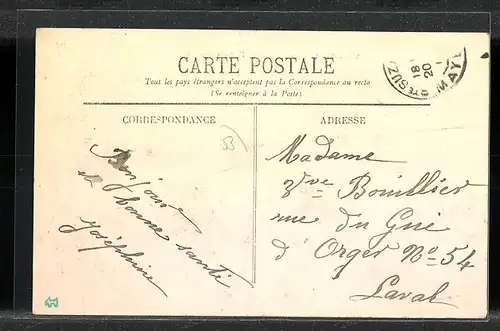 CARTE POSTALE
Tous les pays étrangers n'acceptent pas la Correspondance au recto
(Se renseigner à la Poste)
Rte SUZ
MAYE
18
20
CORRESPONDANCE
ADRESSE
53
Bonjour
et bonne santé
Joséphine
Madame
Vve Bouillier
rue du Gué
d'Orger No 54
Laval